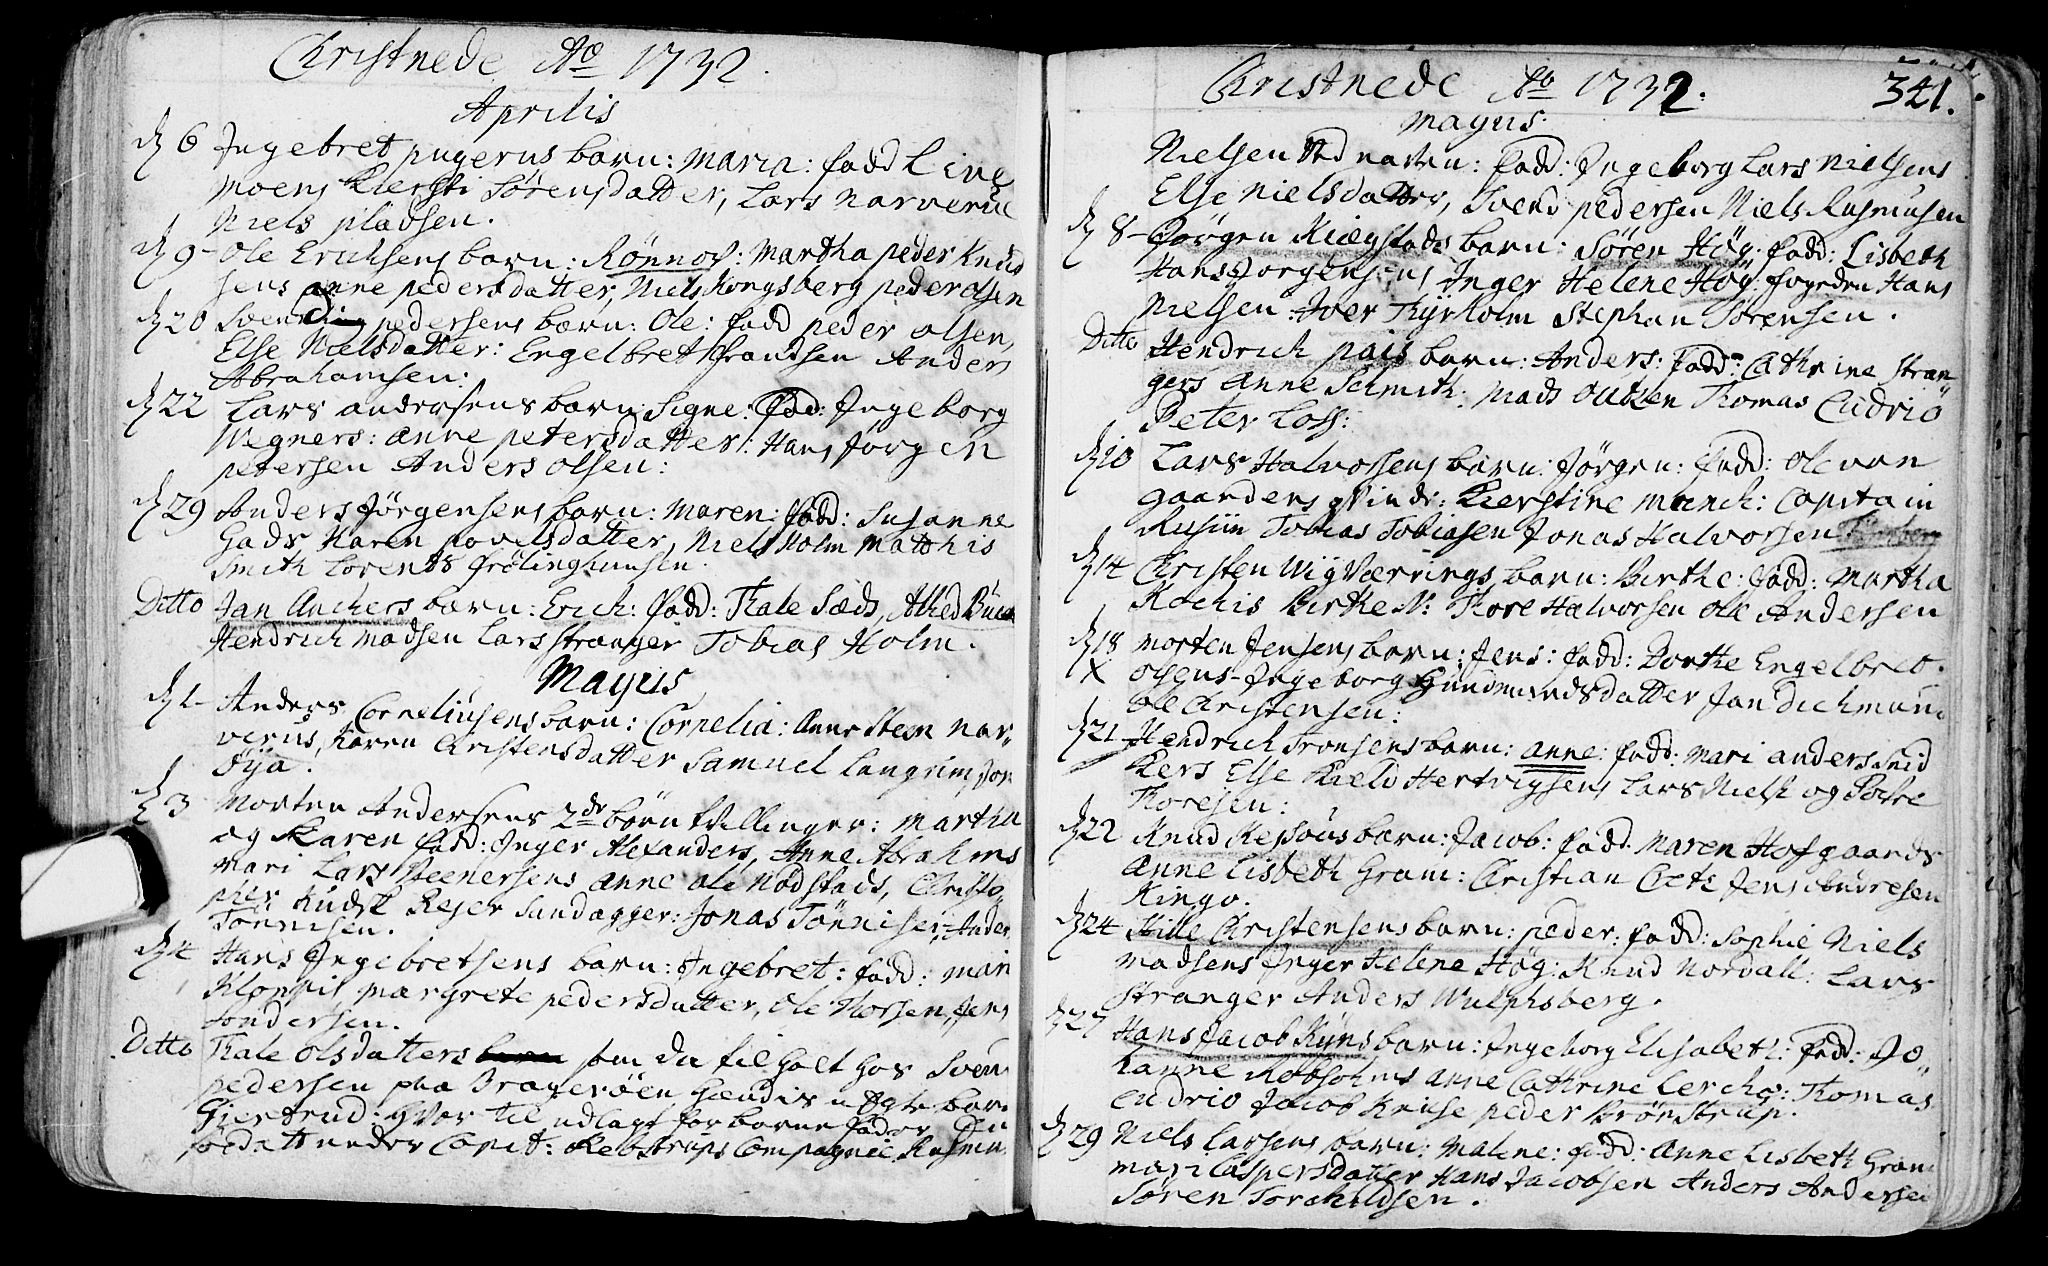 Christnede Ao 1732.
Aprilis
d 6 Ingebret pugerus barn: Maria: fadd Line
moens Kiersti Sörensdatter, Lars Narverud
Niels pladsen.
d 9- Ole Erichsens barn: Rönnof: Martha peder Knud
sens anne pedersdatter, Niels Kongsberg peder olsen
d 20 Svend pedersens barn: Ole: fadd peder olsen,
Else Nielsdatter: Engelbret frandsen Anders
Abrahamsen:
d 22 Lars andersens barn Signe: fad: Ingeborg
Wegners: anne petersdatter: Hans Jörgen
petersen Anders olsen:
d 29 Anders Jörgensens barn: Maren: fadd: Susanne
Gads Karen povelsdatter, Niels Holm Matthis
Smith Lorents frölinghuusen.
Ditto Jan Anchers barn: Erich: fadd: Thale Sæds, Alhed
Hendrich Madsen Lars Stranger Tobias Holm.
Mayus
d 1- Anders Corneliusens barn: Cornelia: Anne Steen Nar„
verus, Karen Christensdatter Samuel Langrim, Jon
öya.
d 3 Morten Andersens 2de börn tvillinger: Martha
og Karen fadd: Inger Alexanders, Anne Abrahms
Mari Lars Steenersens anne ole Nödstads, Christo„
pher Kudsk Rejer Sandagger: Jonas Tönnisen, Ander
Tönnisen.
d 4 Hans Ingebretsens barn: Ingebret: fadd: Mari
Klompis, Margrete pedersdatter, Ole Thossen, Jens
Andersen.
Ditto Thale olsdatters som da til holt hos Sven
pedersen paa Brageröen hendis uægte barn
Giertrud: hvor til udlagt for barne fader En
under Capit: Rebstrups Compagnie Rasmu
Christnede Ao 1732: 341.
Mayus:
Nielsen Ved navn: fadd: Ingeborg Lars Nielsens
Else Nielsdatter, Svend pedersen Niels Rasmusen
d 8- Jörgen Kiægstads barn: Sören Hög: fadd: Lisbeth
Hans Jorgensens Inger Helene Hög: fogeden Hans
Nielsen: Iver Thyrholm Stephan Sörensen.
Ditto Hendrich pais barn: Anders: fadd: Cathrine Stran„
gers Anne Schmith: Mads outzen Thomas Cudrio
Peter Loss:
d 10 Lars Halvorsens barn: Jörgen: fadd: Ole van
gaardens qvinde: Kierstine Munch: Capitain
Rusiin Tobias Tobiasen Jonas Halvorsen
d 14 Christen Wigværrings barn: Birthe: fadd: Martha
Kochis Birthe N: Thore Halvorsen Ole Andersen
d 18 Morten Jensens barn: Jens: fadd: Dorthe Engelbret
X Ingeborg Gundmundsdatter Jan Dichman
Ole Christensen:
d 21 Hendrich Tronsens barn: Anne: fadd: Mari anders Snid
Kers Else Kield Hertvigsens Lars Niels og
Thoresen:
d 22 Knud barn: Jacob: fadd: Maren Hofgaards
Anne Lisbeth Gram: Christian Jens Andresen
Kingo.
d 24 Hille Christensens barn: peder: fadd: Sophie Niels
Madsens Inger Helene Hög: Knud Nordall: Lars
Stranger Anders Wulphsberg.
d 27 Hans Jacob Küns barn: Ingeborg Elisabeth: fadd: Jo„
hanne Anne Cathrine Lerche: Thomas
Cudrio Jacob Kruse peder Brönstrup.
d 29 Niels Larsens barn: Malene: fadd: Anne Lisbeth Gram
Mari Caspersdatter Hans Jacobsen Anders Andersen
Sören Torchildsen.